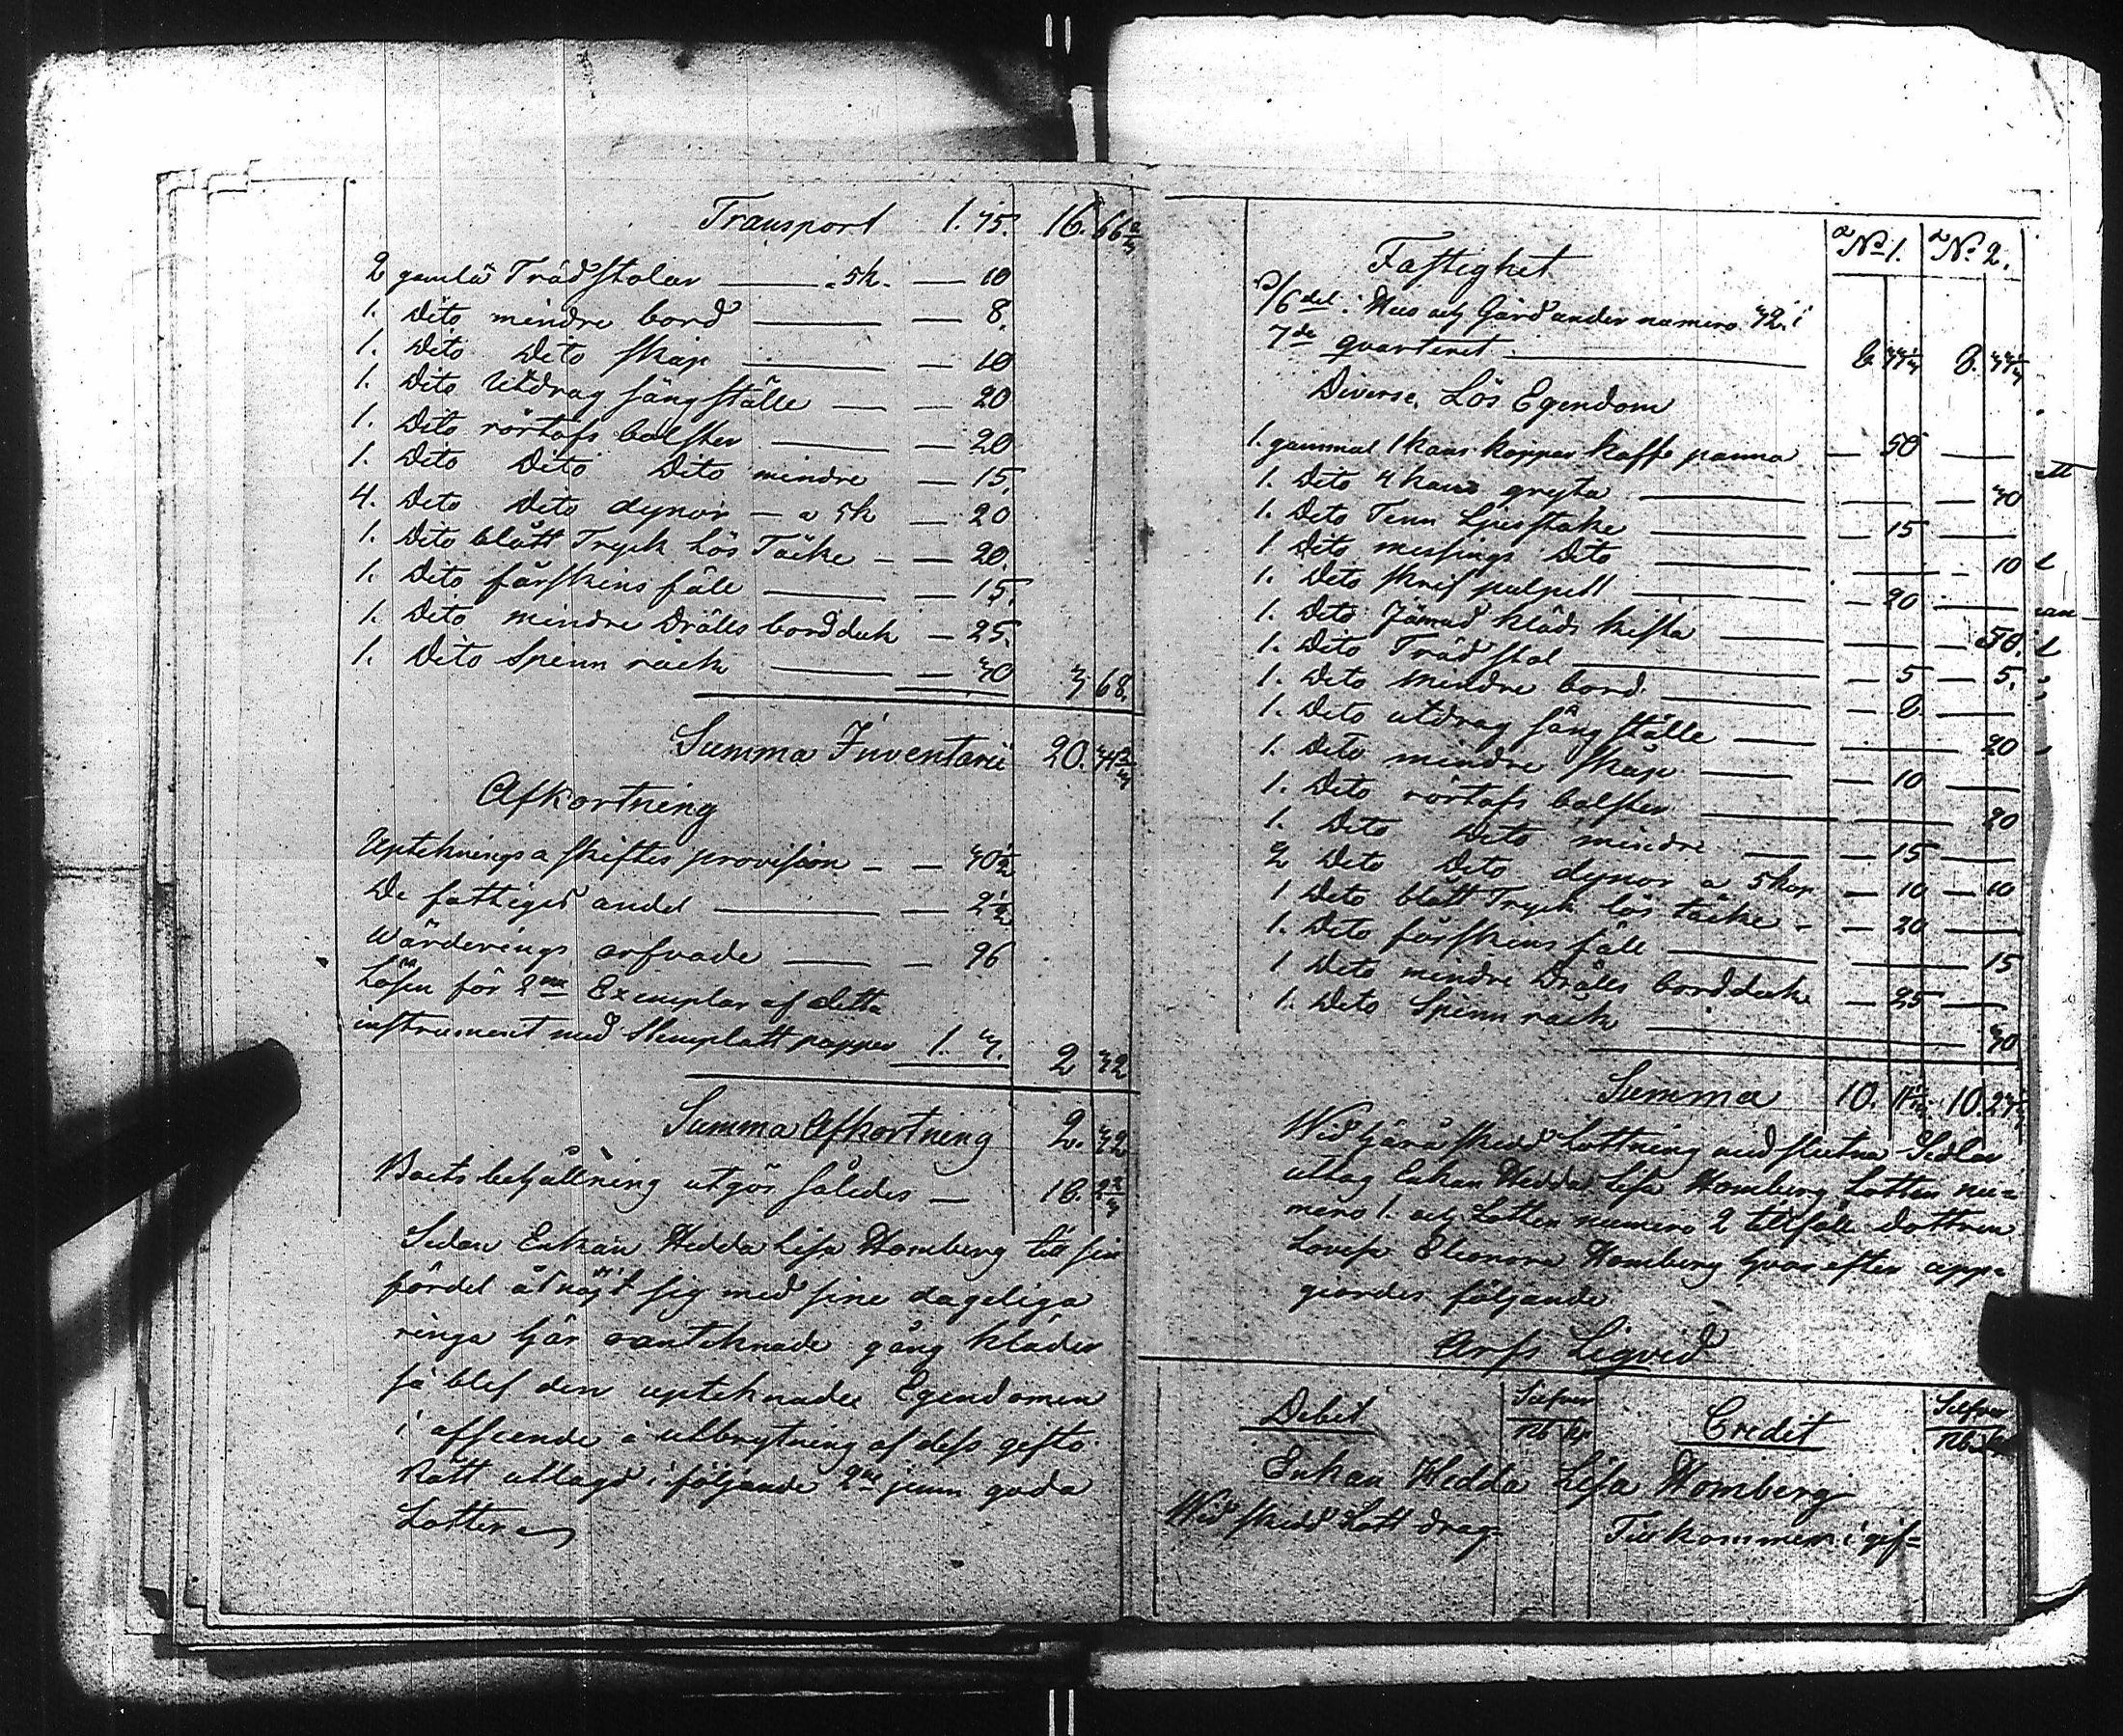 Transport 1. 75. 16. 66 2/3
2 gamla Trädstolar — 5k. — 10
1. Dito mindre bord — 8.
1. Dito Dito skåp — 10
1. Dito Utdrag sängställe — 20
1. Dito rörtofs bolster — 20
1. Dito Dito Dito mindre — 15.
4. Dito Dito dynor — a 5k — 20
1. Dito blått Tryck lös Täcke — 20.
1. Dito fårskins fäll — 15.
1. Dito mindre Drälls bordduk — 25.
1. Dito Spinn råck — 30 3 68.
Summa Inventarii 20. 34 2/3
Afkortning
Upteknings a skiftes provision — 30 1/2
De fattigas andel — 2 1/2
Wärderings arfvode — 96
Lösen för 2ne Exemplar af detta
instrument med Stemplatt papper 1. 3. 2 32
Summa Afkortning 2. 32
Boets behållning utgör således — 18. 2 2/3
Sedan Enkan Hedda Lisa Homberg till sin
fördel åtnöjt sig med sine dageliga
ringa här oanteknade gång kläder
så blef den uptecknade Egendomen
i afseende å utbrytning af dess gifto
Rätt uttagd i följande 2ne jemn goda
Lotter
No 1. No 2.
Fastighet
/6 del: Hus och Gård under numero 32. i
7de quarteret — 8. 33 1/3 8. 33 1/3
Diverse Lös Egendom
1. gammal 1 kans koppar kaffe panna — 50 —
1. Dito 4 kans gryta — 30
1. Dito Tenn Ljusstake — 15 —
1 Dito messings Dito — 10
1. Dito skrif pulpett — 20 —
1. Dito Jämnd kläds kista — 50.
1. Dito Träd stol — 5 — 5.
1. Dito mindre bord — 8. —
1. Dito utdrag säng ställe — 20
1. Dito mindre skåp — 10 —
1. Dito rörtofs bolster — 20
1. Dito Dito mindre — 15 —
2 Dito Dito dynor a 5 kop — 10 — 10
1 Dito blått Tryck lös täcke — 20 —
1. Dito fårskins fäll — 15
1 Dito mindre Drälls bordduk — 25 —
1. Dito Spinn råck — 30
Summa 10. 11 1/3 10. 23 1/3
Wid härå skedd Lottning med slutna Sedlar
uttog Enkan Hedda Lisa Homberg Lotten nu-
mero 1. och Lotten numero 2 tillföll dottren
Lovisa Eleonora Homberg hvarefter upp-
giordes följande
Arfs Liqvid
Debet Silfver Rb. kp. Credit Silfver Rb. kp.
Enkan Hedda Lisa Homberg
Wid skedd Lott drag- Tillkommer i gif-